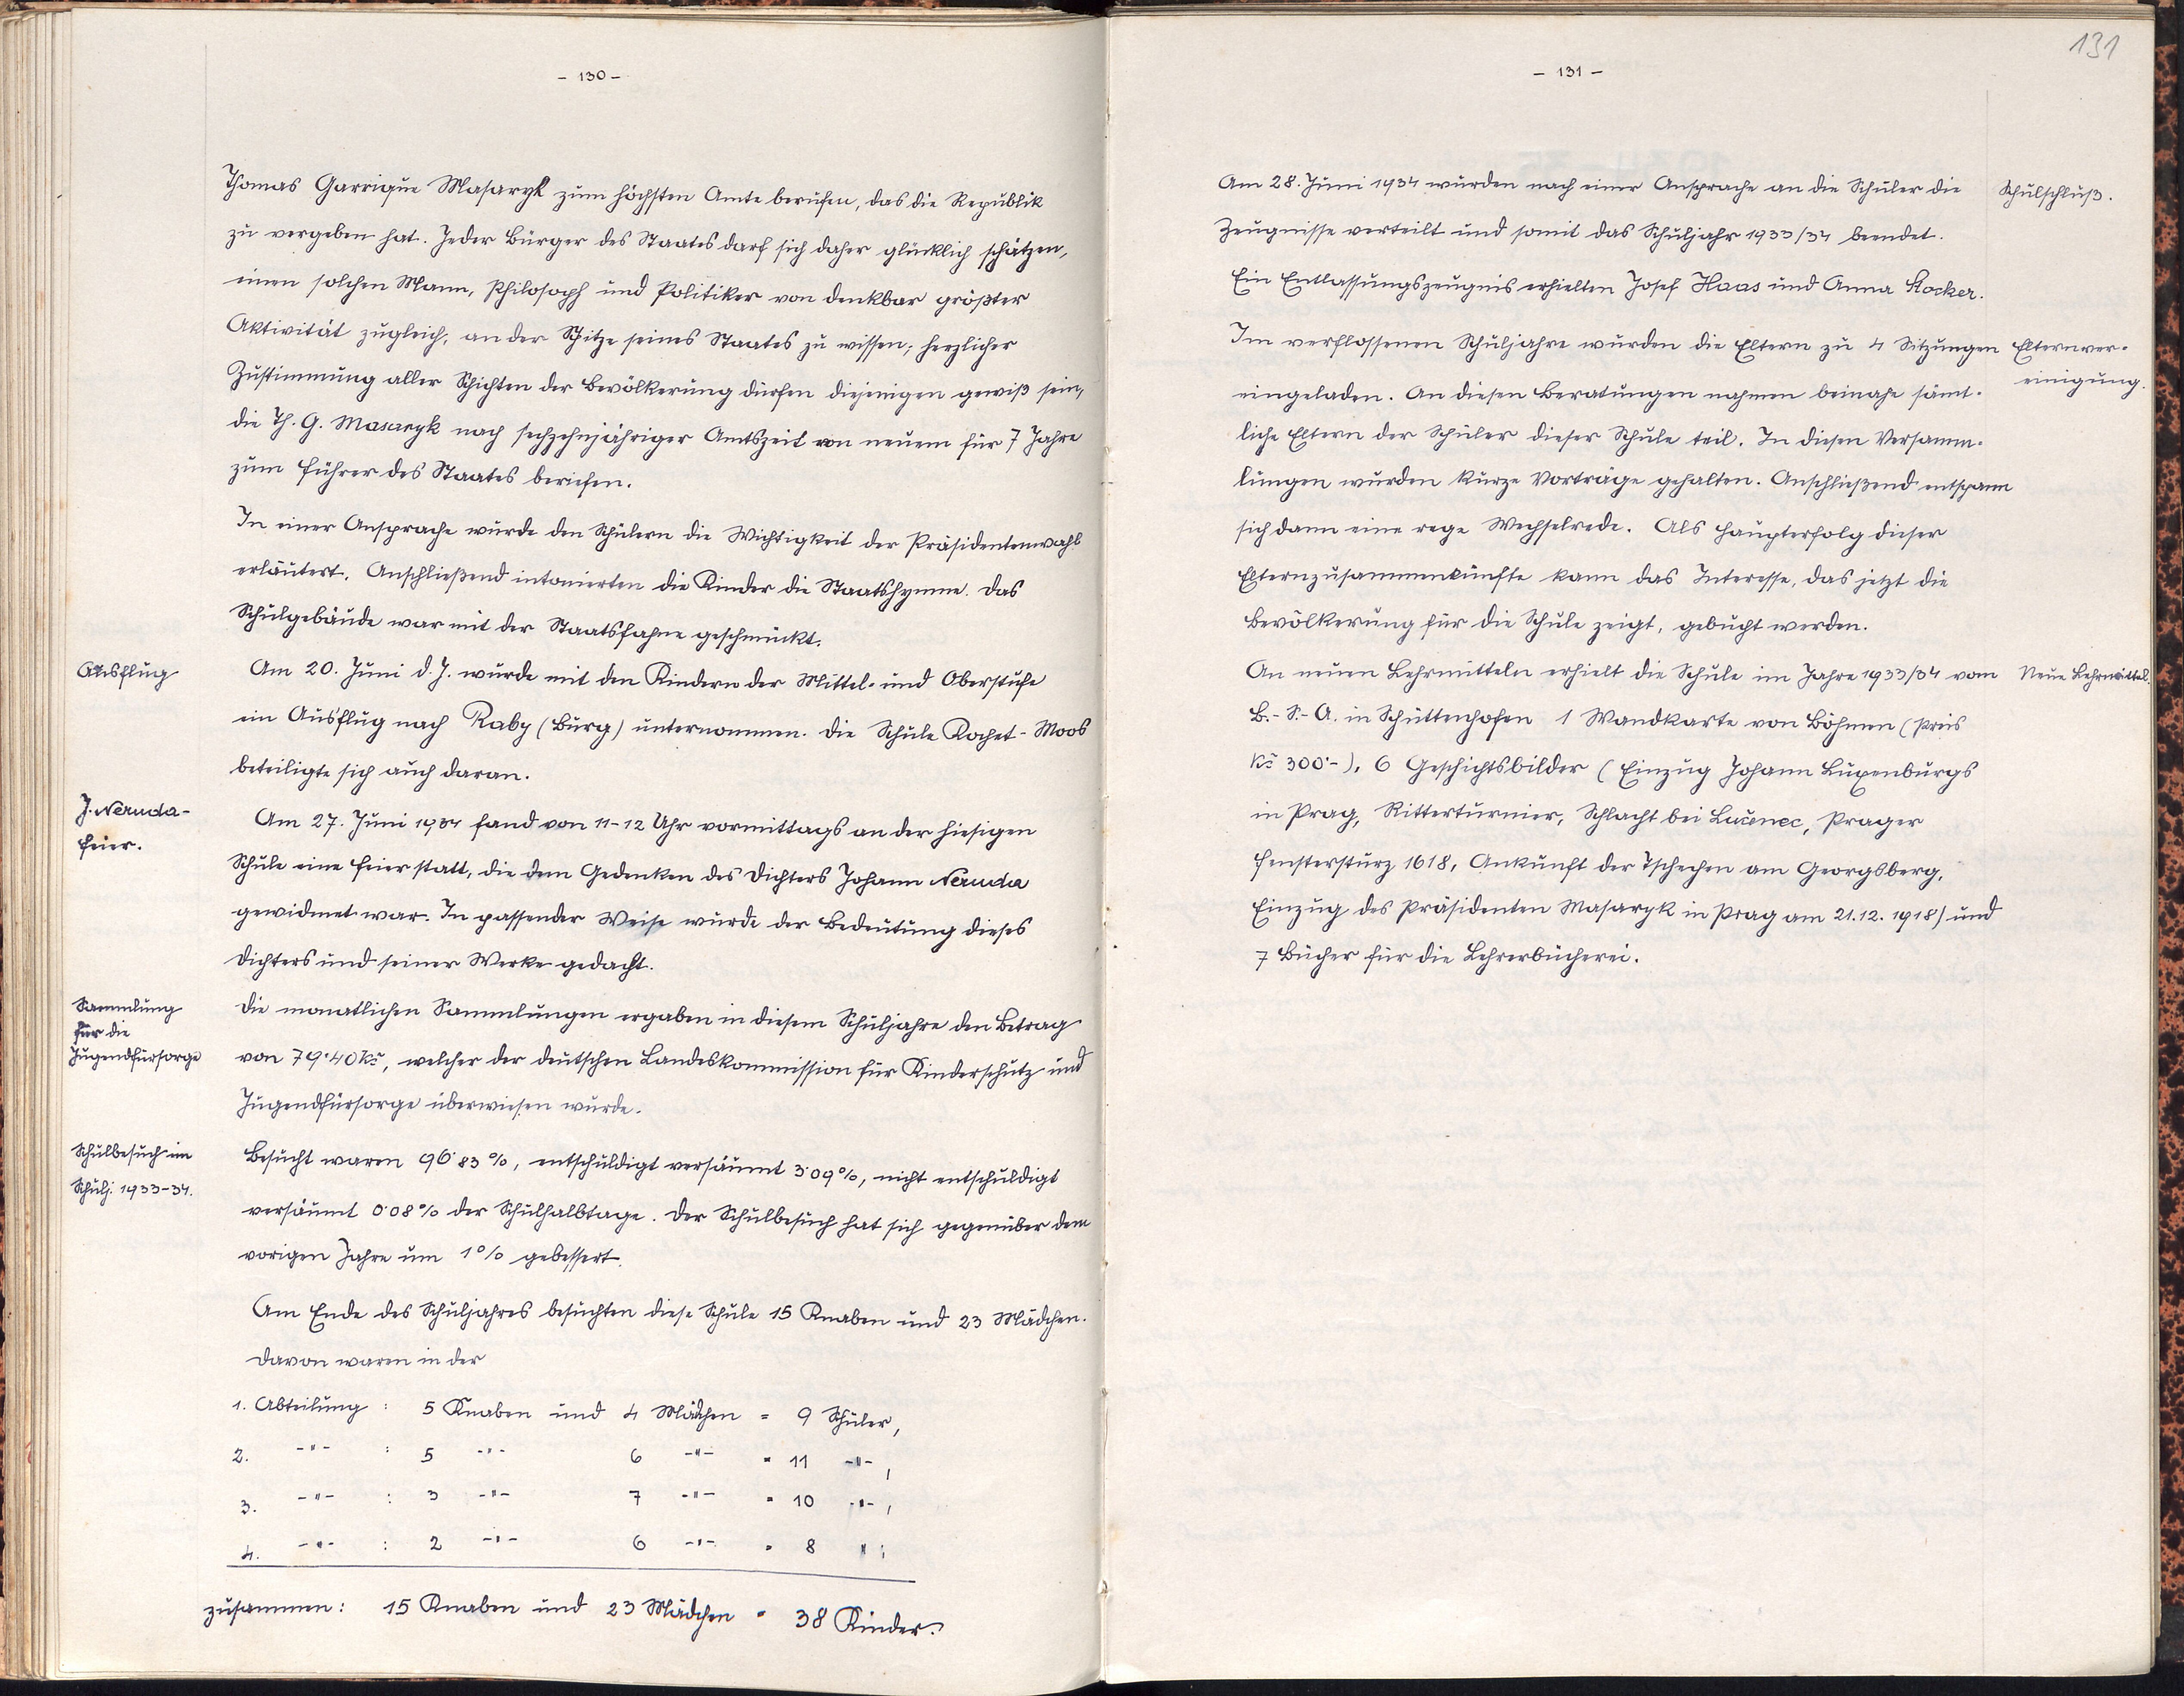 - 130 -
Thomas Garrique Masaryk zum höchsten Amte berufen, das die Republik
zu vergeben hat. Jeder Bürger des Staates darf sich daher glücklich schätzen,
einen solchen Mann, Philosoph und Politiker von denkbar größter
Aktivität zugleich, an der Spitze seines Staates zu wissen; herzlicher
Zustimmung aller Schichten der Bevölkerung dürfen diejenigen gewiß sein,
die Th. G. Masaryk nach sechzehnjähriger Amtszeit von neuem für 7 Jahre
zum Führer des Staates beriefen.
In einer Ansprache wurde den Schülern die Wichtigkeit der Präsidentenwahl
erläutert. Anschließend intonierten die Kinder die Staatshymne. Das
Schulgebäude war mit der Staatsfahne geschmückt.
Ausflug
Am 20. Juni d. J. wurde mit den Kindern der Mittel- und Oberstufe
ein Ausflug nach Raby (Burg) unternommen. Die Schule Rochet-Moos
beteiligte sich auch daran.
J. Neruda-
feier.
Am 27. Juni 1934 fand von 11-12 Uhr vormittags an der hiesigen
Schule eine Feier statt, die dem Gedenken des Dichters Johann Neruda
gewidmet war. In passender Weise wurde der Bedeutung dieses
Dichters und seiner Werke gedacht.
Sammlung
für die
Jugendfürsorge
Die monatlichen Sammlungen ergaben in diesem Schuljahre den Betrag
von 79·40 Kč, welcher der deutschen Landeskommission für Kinderschutz und
Jugendfürsorge überwiesen wurde.
Schulbesuch im
Schulj. 1933-34.
Besucht waren 96·83 %, entschuldigt versäumt 3·09 %, nicht entschuldigt
versäumt 0·08 % der Schulhalbtage. Der Schulbesuch hat sich gegenüber dem
vorigen Jahre um 1 % gebessert.
Am Ende des Schuljahres besuchten diese Schule 15 Knaben und 23 Mädchen.
Davon waren in der
1. Abteilung : 5 Knaben und 4 Mädchen = 9 Schüler,
2. -"- : 5 -"- 6 -"- = 11 -"-,
3. -"- : 3 -"- 7 -"- = 10 -"-,
4. -"- : 2 -"- 6 -"- = 8 ";
zusammen: 15 Knaben und 23 Mädchen = 38 Kinder.
131
- 131 -
Am 28. Juni 1934 wurden nach einer Ansprache an die Schüler die
Zeugnisse verteilt und somit das Schuljahr 1933/34 beendet.
Ein Entlassungszeugnis erhielten Josef Haas und Anna Stocker.
Schulschluß.
Im verflossenen Schuljahre wurden die Eltern zu 4 Sitzungen
eingeladen. An diesen Beratungen nahmen beinahe sämt-
liche Eltern der Schüler dieser Schule teil. In diesen Versamm-
lungen wurden kurze Vorträge gehalten. Anschließend entspann
sich dann eine rege Wechselrede. Als Haupterfolg dieser
Elternzusammenkünfte kann das Interesse, das jetzt die
Bevölkerung für die Schule zeigt, gebucht werden.
Elternver-
einigung.
An neuen Lehrmitteln erhielt die Schule im Jahre 1933/34 vom
B.-S.-A. in Schüttenhofen 1 Wandkarte von Böhmen (Preis
Kč 300·-), 6 Geschichtsbilder (Einzug Johann Luxenburgs
in Prag, Ritterturnier, Schlacht bei Lučenec, Prager
Fenstersturz 1618, Ankunft der Tschechen am Georgsberg,
Einzug des Präsidenten Masaryk in Prag am 21.12. 1918) und
7 Bücher für die Lehrerbücherei.
Neue Lehrmittel.